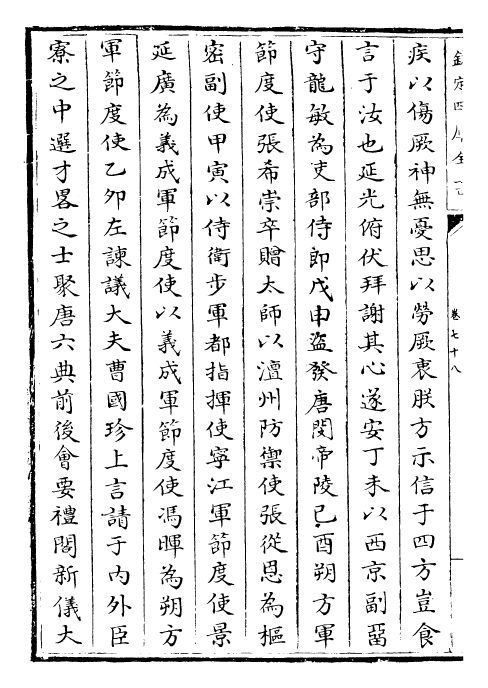 欽定四庫全書
卷七十八
疾以傷厥神無憂思以勞厥衷朕方示信于四方豈食
言于汝也延光俯伏拜謝其心遂安丁未以西京副留
守龍敏為吏部侍郎戊申盜發唐閔帝陵己酉朔方軍
節度使張希崇卒贈太師以澶州防禦使張從恩為樞
密副使甲寅以侍衛步軍都指揮使寧江軍節度使景
延廣為義成軍節度使以義成軍節度使馮暉為朔方
軍節度使乙夘左諫議大夫曹國珍上言請于內外臣
寮之中選才畧之士聚唐六典前後會要禮閣新儀大